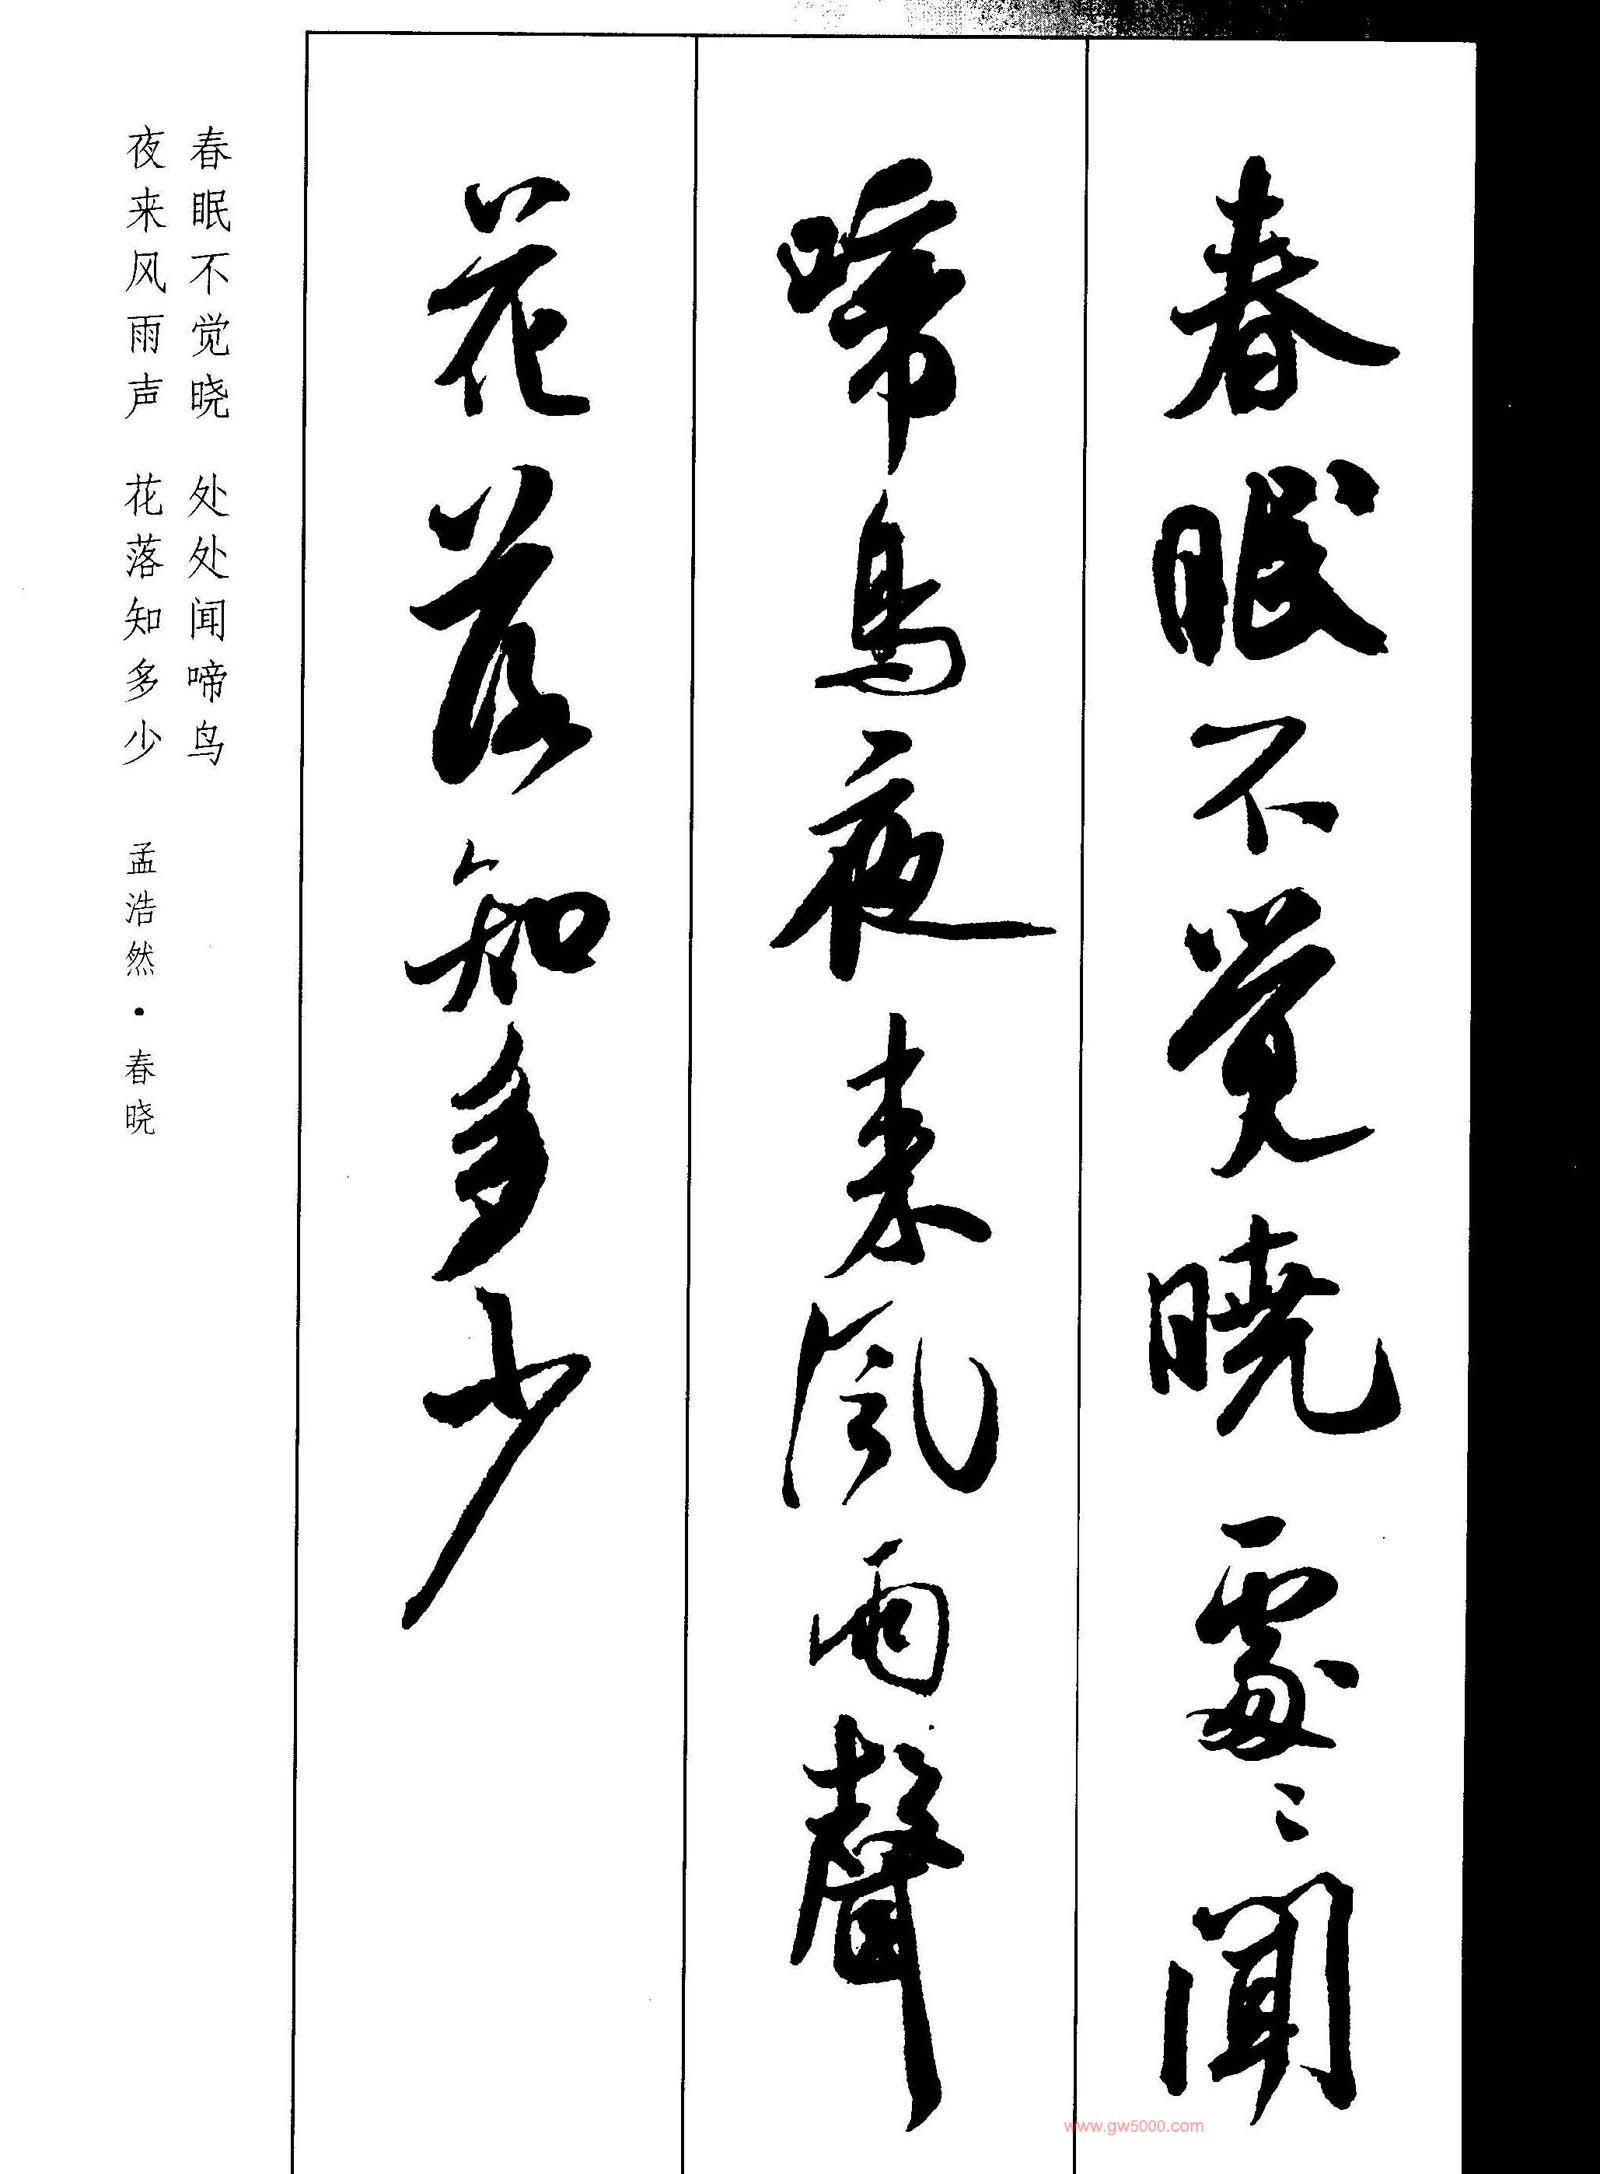 春眠不覺曉處〻聞
啼鳥夜来風雨聲
花落知多少
春眠不觉晓 处处闻啼鸟
夜来风雨声 花落知多少 孟浩然·春晓
www.gw5000.com